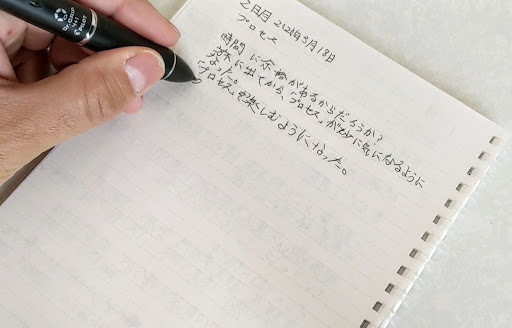 2日目 2021年3月18日
プロセス
時間に余裕があるからだろうか?
旅に出てから、「プロセス」が妙に気になるように
なった。
「プロセス」を楽しむようになった。
Dr. GRIP
4+1
PILOT